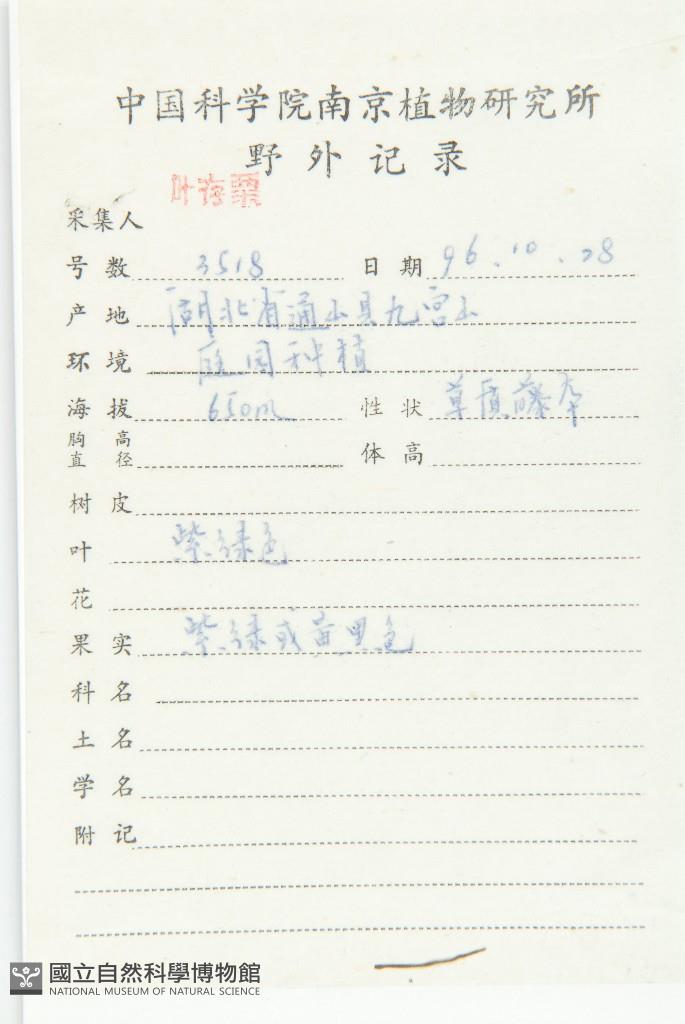 中国科学院南京植物研究所
野外记录
叶存栗
采集人
号数 3518 日期 96.10.28
产地 湖北省通山县九宫山
环境 庭园种植
海拔 650m 性状 草质藤本
胸高直径 体高
树皮
叶 紫绿色
花
果实 紫绿或黄黑色
科名
土名
学名
附记
國立自然科學博物館
NATIONAL MUSEUM OF NATURAL SCIENCE